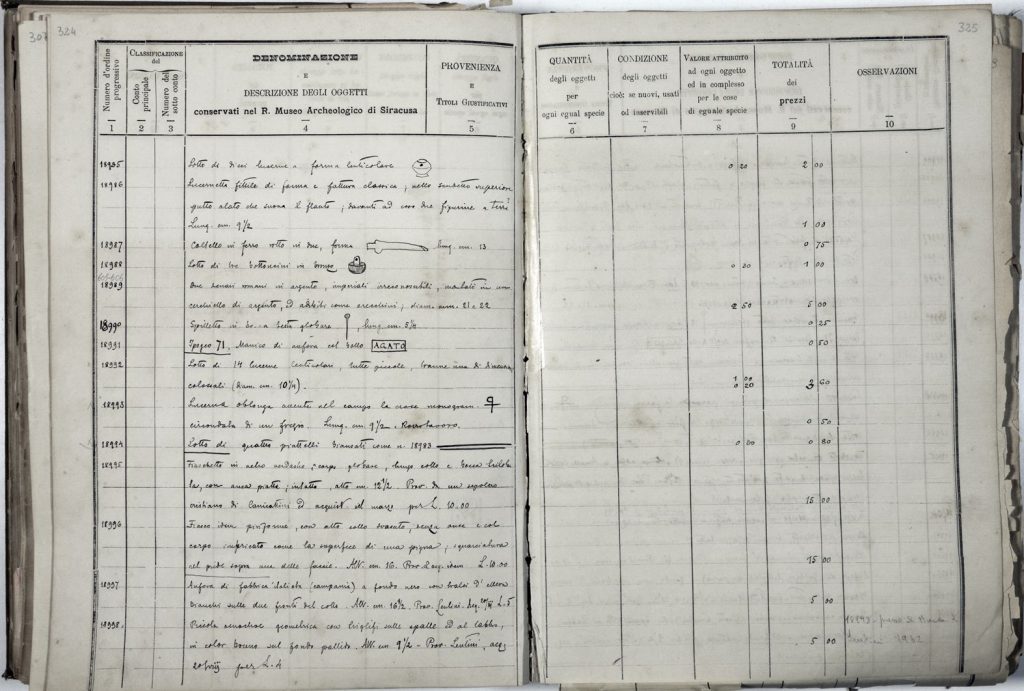 307 324
325
Numero d'ordine progressivo
CLASSIFICAZIONE del
Conto principale
Numero del sotto conto
DENOMINAZIONE
E
DESCRIZIONE DEGLI OGGETTI
conservati nel R. Museo Archeologico di Siracusa
PROVENIENZA
E
TITOLI GIUSTIFICATIVI
QUANTITÀ
degli oggetti
per
ogni egual specie
CONDIZIONE
degli oggetti
cioè: se nuovi, usati
od inservibili
VALORE ATTRIBUITO
ad ogni oggetto
ed in complesso
per le cose
di eguale specie
TOTALITÀ
dei
prezzi
OSSERVAZIONI
1 2 3 4 5 6 7 8 9 10
18985 Lotto di dieci lucerne a forma lenticolare 0 20 2 00
18986 Lucernetta fittile di forma e fattura classica; nello scudetto superiore
putto alato che suona il flauto; davanti ad esso due figurine a terra
Lung. cm. 9 1/2 1 00
18987 Coltello in ferro rotto in due, forma lung. cm. 13 0 75
18988 Lotto di tre bottoncini in bronzo 0 20 1 00
18989 Due denari romani in argento, imperiali irreconoscibili, montati in un
cerchiello di argento, ed adibiti come orecchini; diam. mm. 21 e 22 2 50 5 00
18990 Spilletto in a testa globare, lung. cm. 5 0 25
18991 Ipogeo 71. Manico di anfora col bollo AGATO 0 50
18992 Lotto di 14 lucerne lenticolari, tutte piccole, tranne una di dimens.
colossali (diam. cm. 10 1/4) 1 00 0 20 3 60
18993 Lucerna oblonga avente nel campo la croce monogram.
circondata di un fregio. Lung. cm. 9 1/2. 0 50
18994 Lotto di quattro piattelli biansati come n. 18983 0 20 0 80
18995 Fiaschetto in vetro verdastro; corpo globare, lungo collo e bocca trilobata,
con ansa piatta; intatto, alto cm. 12 1/2 Prov. da un sepolcro
cristiano di Canicattini ed acquist. nel marzo per L. 10.00 15 00
18996 Fiasco idem piriforme, con alto collo svasato, senza anse e col
corpo imbricato come la superfice di una pigna; squarciatura
nel piede sopra una delle faccie. Alt. cm. 16. Prov. ed acq. idem. L. 10.00 15 00
18997 Anfora di fabbrica Italiota (campania) a fondo nero con tralci d'edera
bianchi sulle due fronti del collo. Alt. cm. 16 1/2. Prov. Lentini. Acq. L. 5 5 00
18998 Piccola geometrica con triglifi sulle spalle ed al labbro,
in color bruno sul fondo pallido. Alt. cm 9 1/2 - Prov. Lentini, acq.
per L. 4 5 00
1932